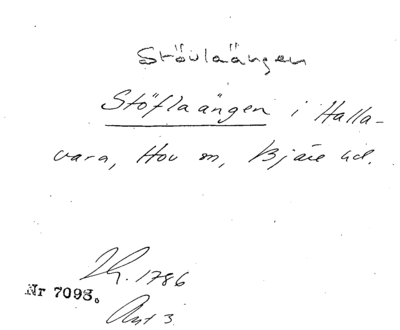 Stövlaängen
Stöflaängen i Halla-
vara, Hov sn, Bjäre hd.
1786
Nr 7093.
Akt 3.